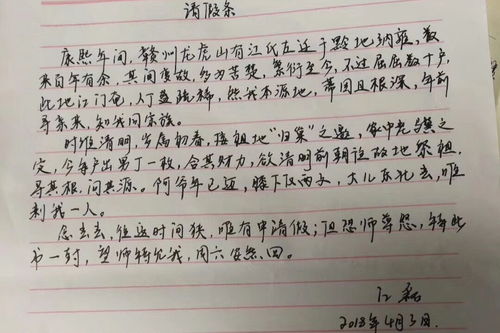 请假条
康熙年间,赣州龙虎山有江氏左迁于黔地纳雍,数
来百年有余,其间变故,多为苦楚,繁衍至今,不过屈屈数十户,
此地江门奄,人丁益疏稀,然我本源地,蒂固且根深,年前
寻亲来,知我同宗族。
时值清明,岁属初春,接祖地“归巢”之邀,家中老与焦之
定,今年户出男丁一枚,合其财力,欲清明前朝谊故地祭祖,
寻其根,问其源。何爷年已迈,膝下仅两丈,大儿东北去,唯
剩我一人。
念去去,往返时间狭,唯有申请假;但恐师尊怒,特此
书一封,望师特允我,周六安然回。
江磊
2018年4月3日.